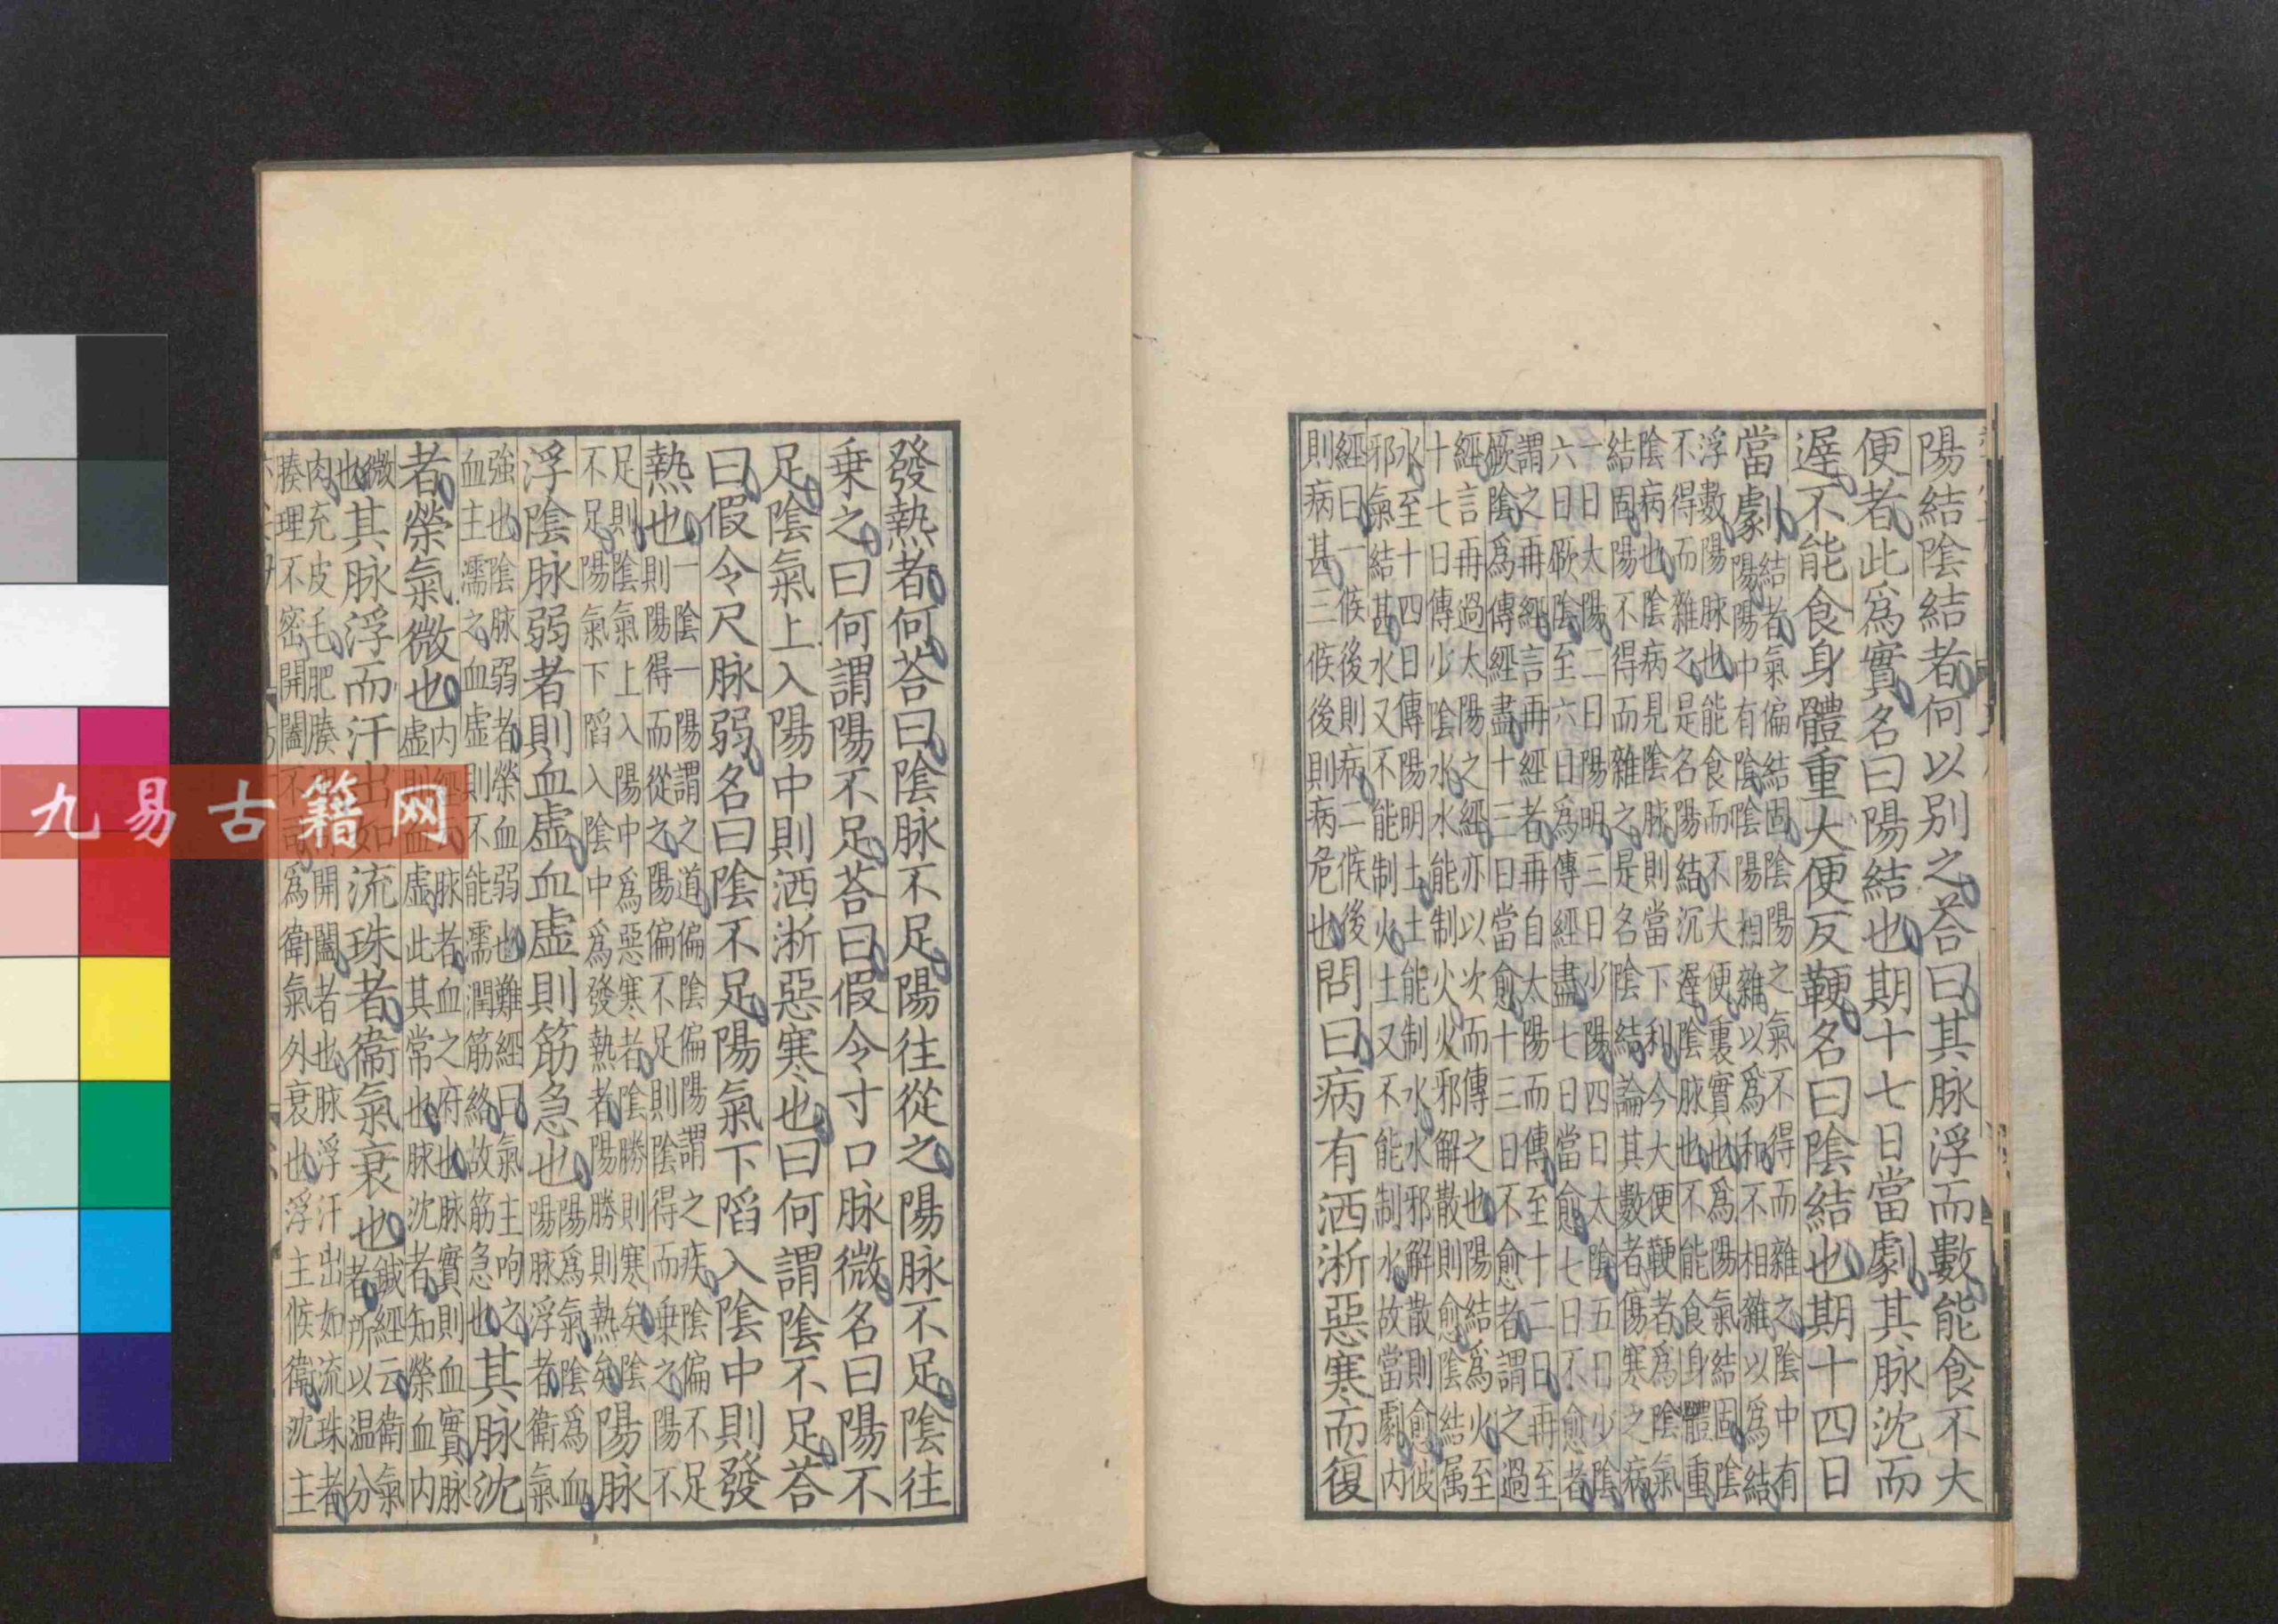 陽結陰結者何以别之荅曰其脉浮而數能食不大
便者此爲實名曰陽結也期十七日當劇其脉沈而
遲不能食身體重大便反鞕名曰陰結也期十四日
當劇
結者氣偏結固陰陽之氣不得而雜之陰中有
陽陽中有陰陰陽相雜以爲和不相雜以爲結
浮數陽脉也能食而不大便裏實也爲陽氣結固陰
不得而雜之是名陽結沉遲陰脉也不能食身體重
陰病也陰病見陰脉則當下利今大便鞕者爲陰氣
結固陽不得而雜之是名陰結論其數者傷寒之病
一日太陽二日陽明三日少陽四日太陰五日少陰
六日厥陰至六日爲傳經盡七日當愈七日不愈者
謂之再經言再經者再自太陽而傳至十二日再至
厥陰爲傳經盡十三日當愈十三日不愈者謂之過
經言再過太陽之經亦以次而傳之也陽結爲火至
十七日傳少陰水水能制火火邪解散則愈陰結属
水至十四日傳陽明土土能制水水邪解散則愈彼
邪氣結甚水又不能制火土又不能制水故當劇内
經曰一候後則病二候後
則病甚三候後則病危也
問曰病有洒淅惡寒而復
發熱者何荅曰陰脉不足陽往從之陽脉不足陰往
乗之曰何謂陽不足荅曰假令寸口脉微名曰陽不
足陰氣上入陽中則洒淅惡寒也曰何謂陰不足荅
曰假令尺脉弱名曰陰不足陽氣下陷入陰中則發
熱也
一陰一陽謂之道偏陰偏陽謂之疾陰偏不足
則陽得而從之陽偏不足則陰得而乗之陽不
足則陰氣上入陽中爲惡寒者陰勝則寒矣陰
不足陽氣下陷入陰中爲發熱者陽勝則熱矣
陽脉
浮陰脉弱者則血虚血虚則筋急也
陽爲氣陰爲血
陽脉浮者衛氣
強也陰脉弱者榮血弱也難經曰氣主呴之
血主濡之血虚則不能濡潤筋絡故筋急也
其脉沈
者榮氣微也
内經云脉者血之府也脉實則血實脉
虚則血虚此其常也脉沈者知榮血内
微
也
其脉浮而汗出如流珠者衞氣衰也
鍼經云衛氣
者所以温分
肉充皮毛肥腠理司開闔者也脉浮汗出如流珠者
腠理不密開闔不司爲衛氣外衰也浮主候衛沈主
九易古籍网